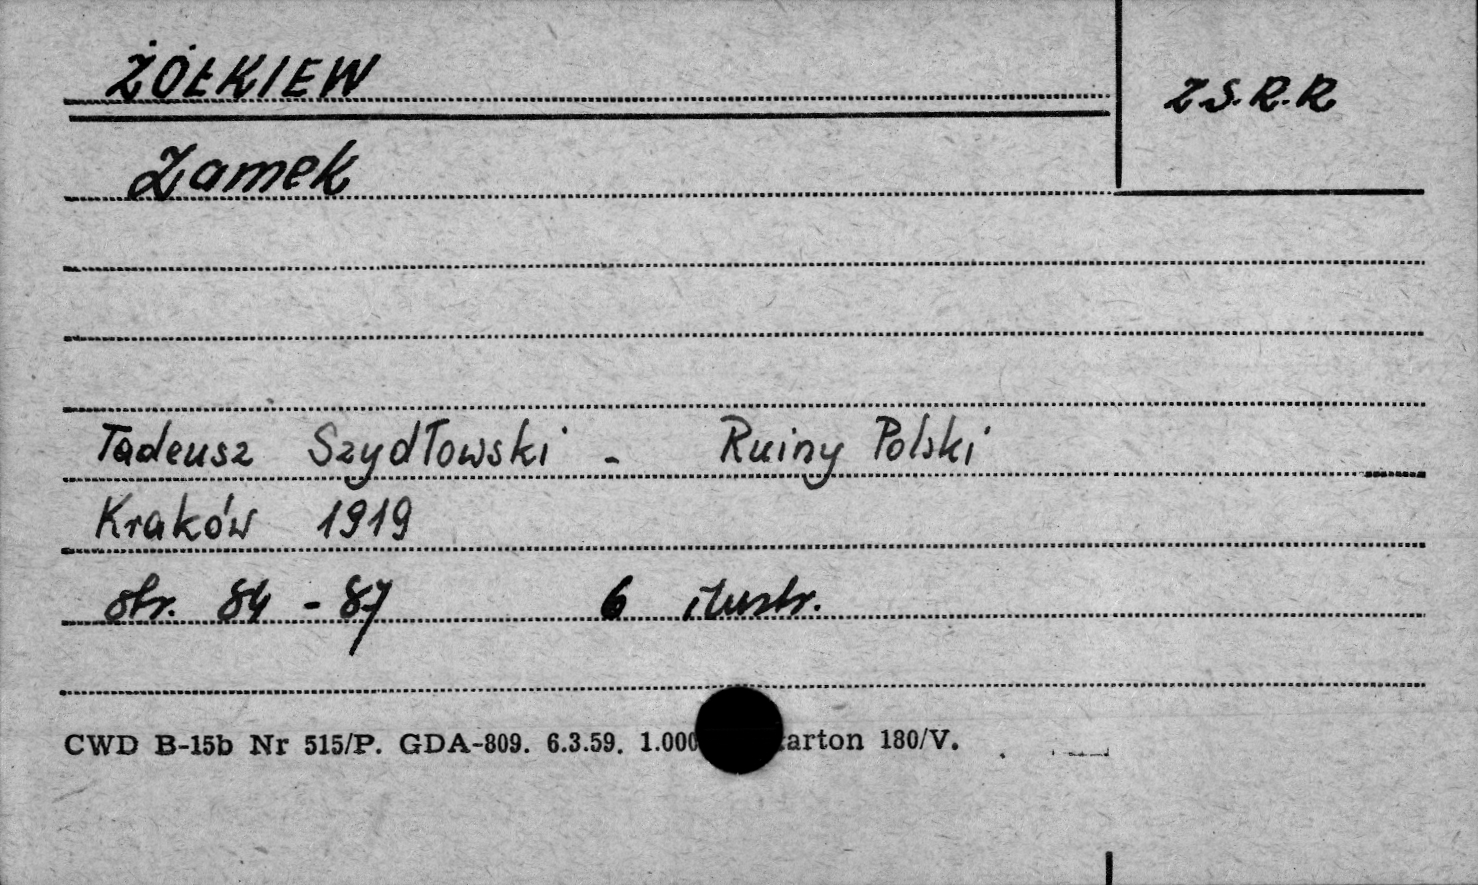 ŻÓŁKIEW
Z.S.R.R
Zamek
Tadeusz Szydłowski - Ruiny Polski
Kraków 1919
str. 84 - 87 6 ilustr.
CWD B-15b Nr 515/P. GDA-809. 6.3.59. 1.000 180/V.